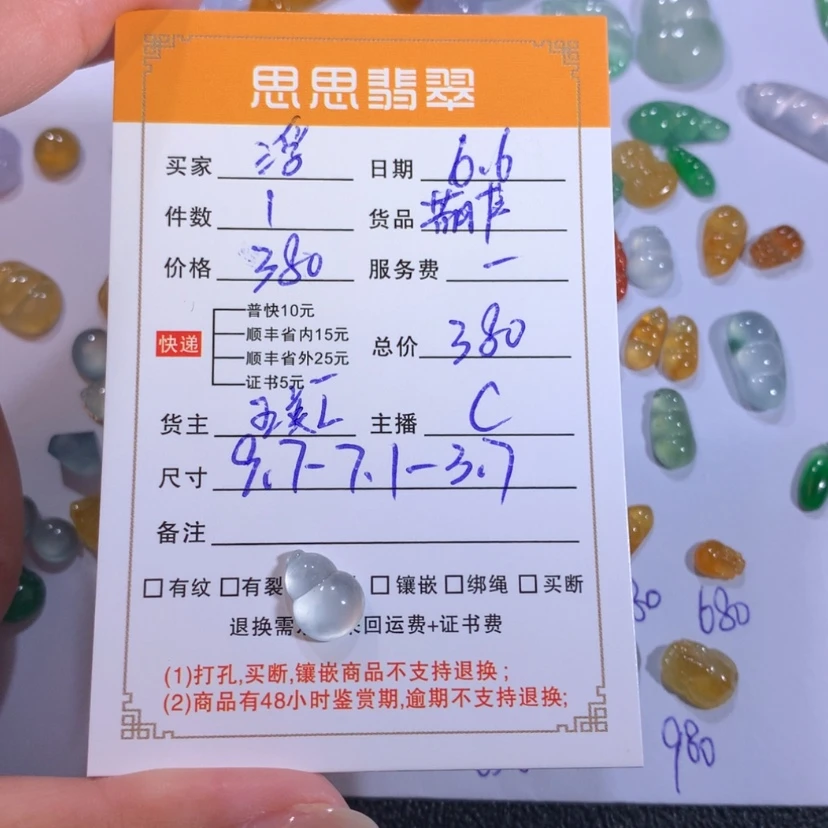 思思翡翠
买家 浮 日期 6.6
件数 1 货品 葫芦
价格 380 服务费 一
普快10元
顺丰省内15元
快递 总价 380
顺丰省外25元
证书5元
货主 主播 C
尺寸 9.7-7.1-3.7
备注
□有纹 □有裂 □镶嵌 □绑绳 □买断
退换需 回运费+证书费
(1)打孔,买断,镶嵌商品不支持退换;
(2)商品有48小时鉴赏期,逾期不支持退换;
680
980